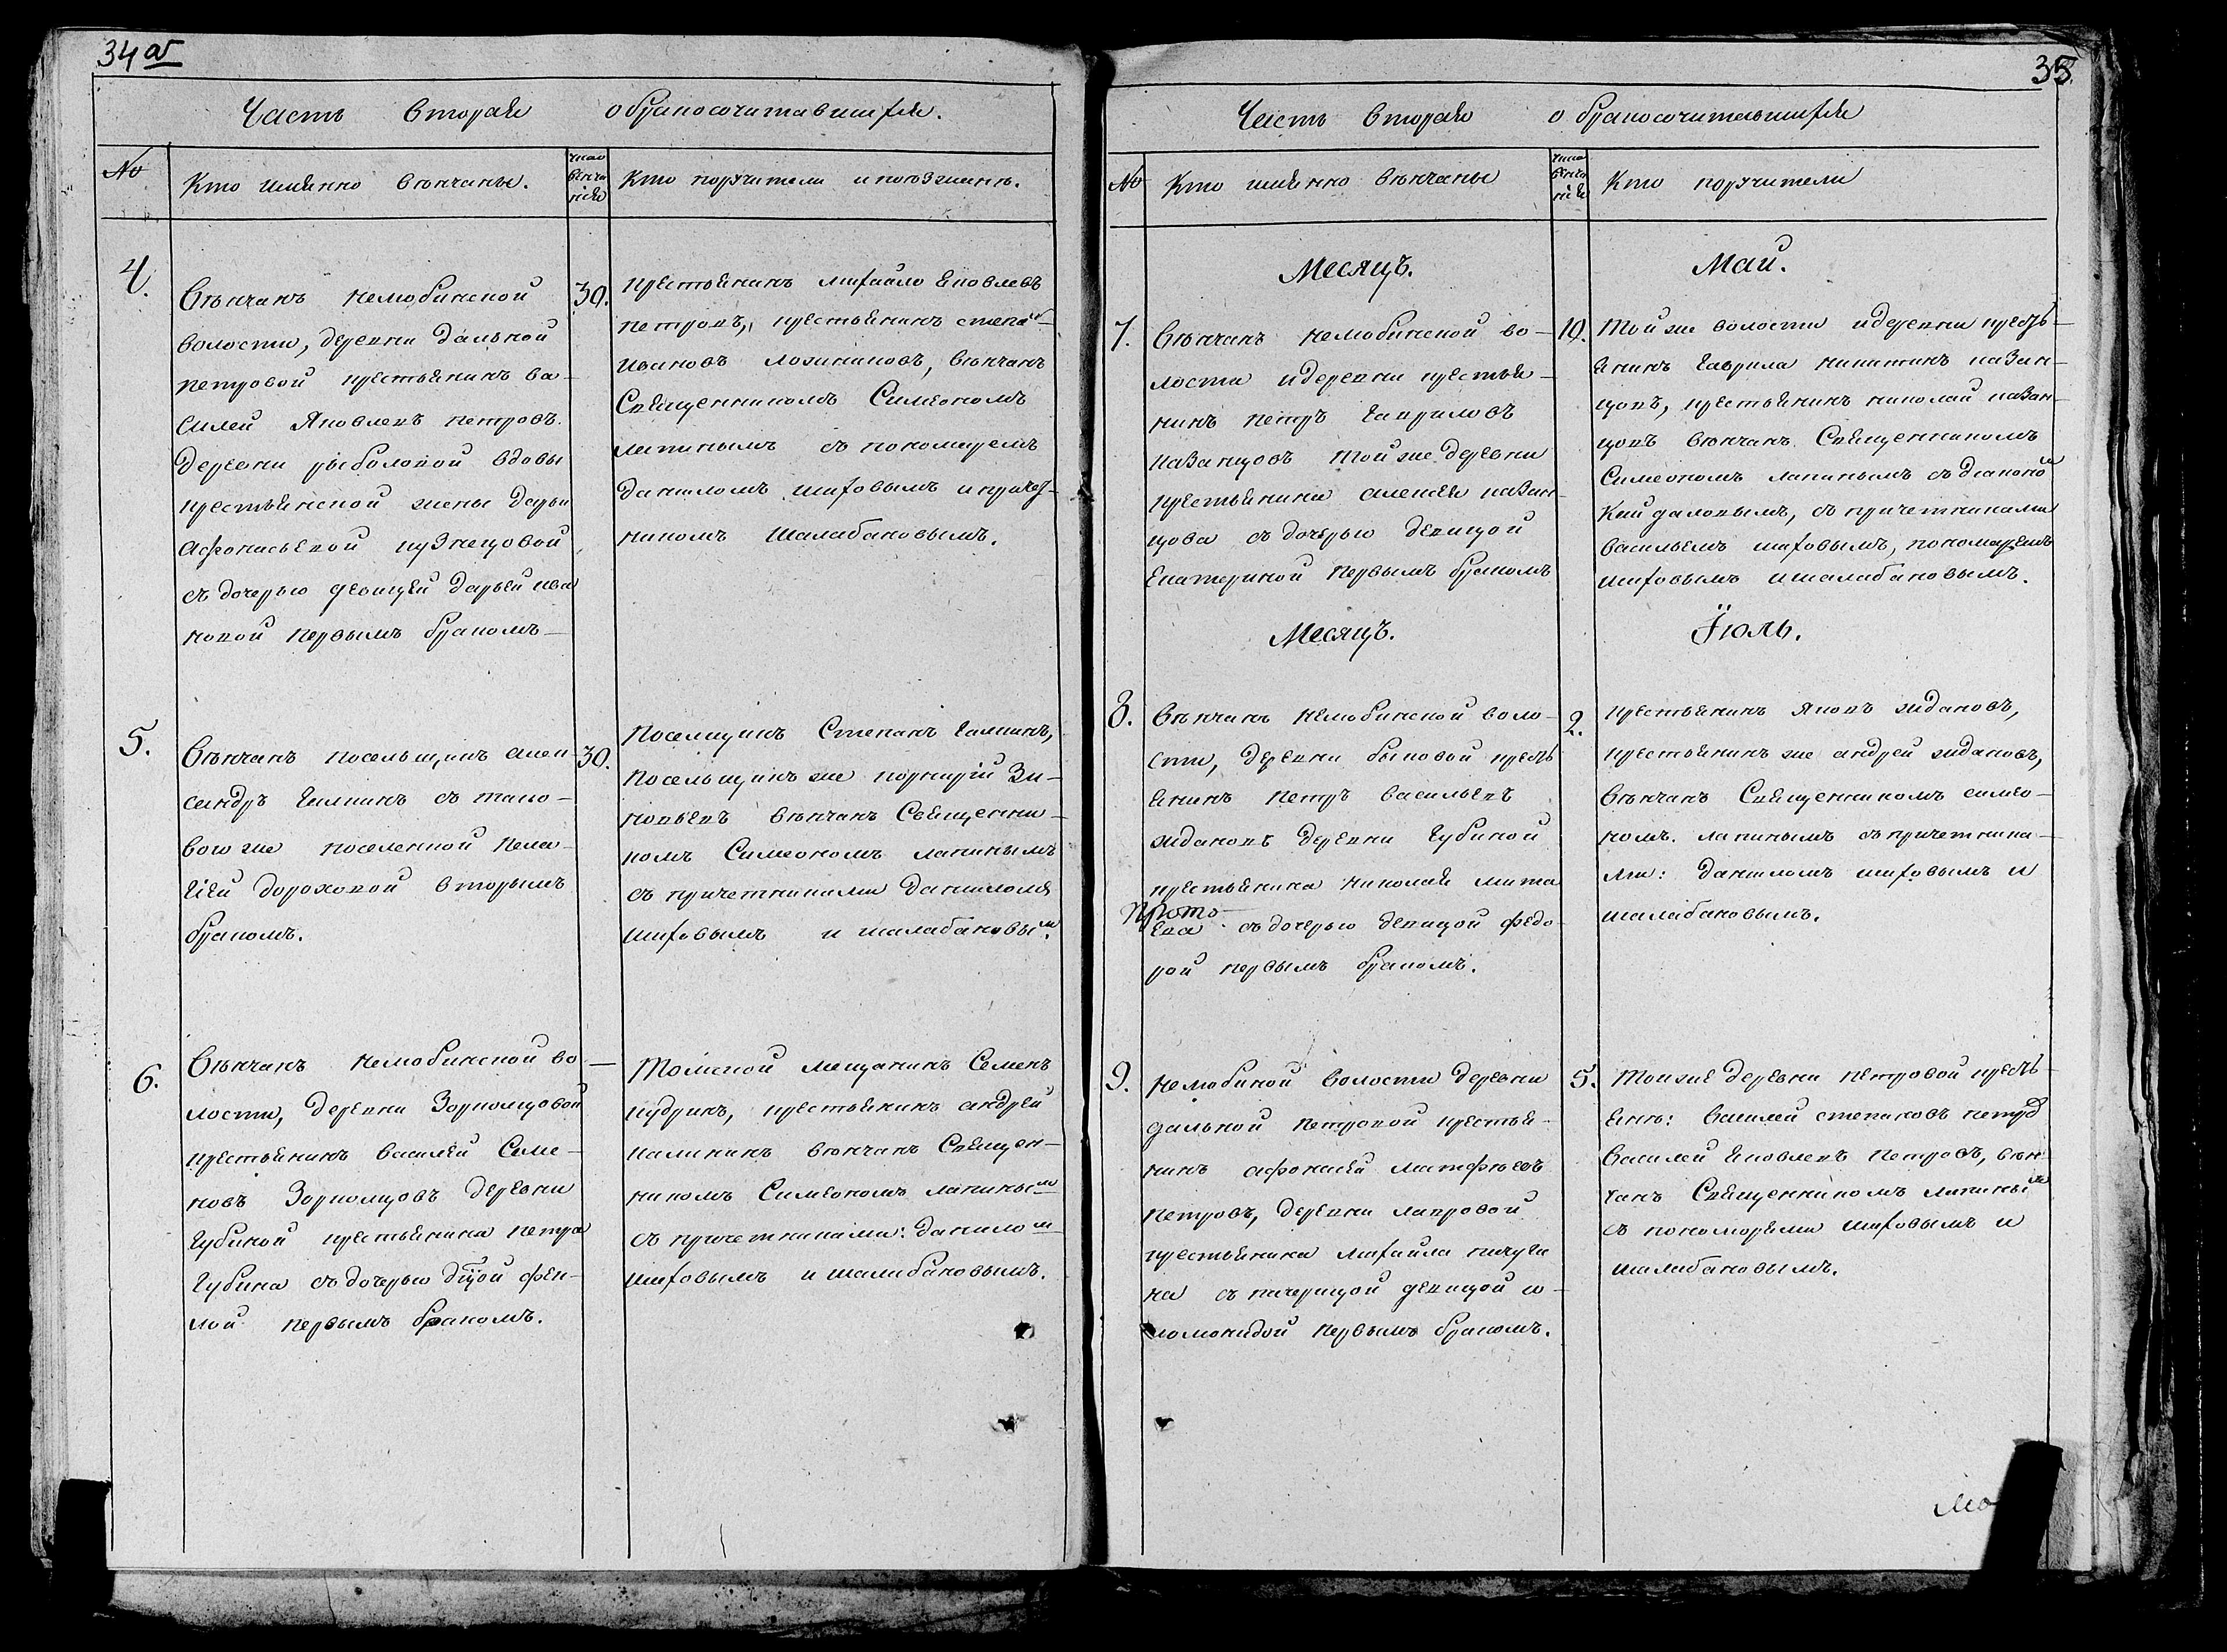 34 об
Часть вторая о бракосочитавшихся.
№
Кто именно венчаны.
число венча нiя
Кто поручители и поезжаня.
4.
Венчанъ Нелюбинской
волости, деревни Дальной
Петровой крестьянинъ Ва-
силей Яковлевъ Петровъ.
деревни рыболовой вдовы
крестьянской жены Дарьи
Афонасьевой кузнецовой
съ дочерью девицей Дарьей ива
новой первымъ бракомъ—
30.
Крестьянинъ михайло Яковлевъ
Петровъ, крестьянинъ степан
ивановъ ложниковъ, венчанъ
Священникомъ Симеономъ
лапинымъ съ пономаремъ
даниломъ шиховымъ и причет-
никомъ шалабановымъ.
5.
Венчанъ посельщикъ алек
сандръ Галкинъ съ тако-
вою же поселенкой Пела-
гiей дороховой вторымъ
бракомъ.
30.
Поселщикъ Степанъ Галкинъ,
посельщикъ же порфирiй Зи-
новьевъ венчанъ Священни-
комъ Симеономъ лапинымъ
съ причетниками даниломъ
шиховымъ и шалабановым.
6.
Венчанъ нелюбинской во-
лости, деревни Зоркольцовой
крестьянинъ василей Семе-
новъ Зоркольцовъ деревни
губиной крестьянина петра
губина съ дочерью дѣцой фек-
лой первымъ бракомъ.
—
Томской мещанинъ Семенъ
кудринъ, крестьянинъ андрей
калининъ венчанъ Священ-
никомъ Симеономъ лапиным
съ причетниками: данилом
шиховымъ и шалабановымъ.
35.
Часть вторая о бракосочитавшихся
№
Кто именно венчаны
числа венча нiя
Кто поручители
Месяцъ. Май.
7.
Венчанъ нелюбинской во-
лости и деревни крестья-
нинъ петръ гавриловъ
казанцовъ той же деревни
крестьянина алексея казан-
цова съ дочерью девицой
Екатериной первымъ бракомъ
10.
Той же волости и деревни кресть-
янинъ гаврила никитинъ казан-
цовъ, крестьянинъ николай казан-
цовъ венчанъ Священникомъ
Симеономъ лапинымъ съ дьяконом
Кайдаловымъ, съ причетниками
васильемъ шиховымъ, пономаремъ
шиховымъ и шалабановымъ.
Месяцъ. Iюль.
8.
Венчанъ нелюбинской воло-
сти, деревни быковой кресть
янинъ петръ васильевъ
ждановъ деревни губиной
крестьянина николая мита
Прото-
ева съ дочерью девицой федо-
рой первымъ бракомъ.
2.
крестьянинъ Яковъ ждановъ,
крестьянинъ же андрей ждановъ,
венчанъ Священникомъ симео-
номъ. лапинымъ съ причетника-
ми: даниломъ шиховымъ и
шалабановымъ.
9.
Нелюбиной волости деревни
дальной петровой крестья-
нинъ афонасей матфеевъ
петровъ, деревни лавровой
крестьянина михаила пичуги
на съ пачерицой девицой со-
ломонидой первымъ бракомъ.
5.
Той же деревни петровой кресть-
янъ: василей степановъ петров
василей Яковлевъ петровъ, вен-
чанъ Священникомъ лапиным
съ пономарями шиховымъ и
шалабановымъ.